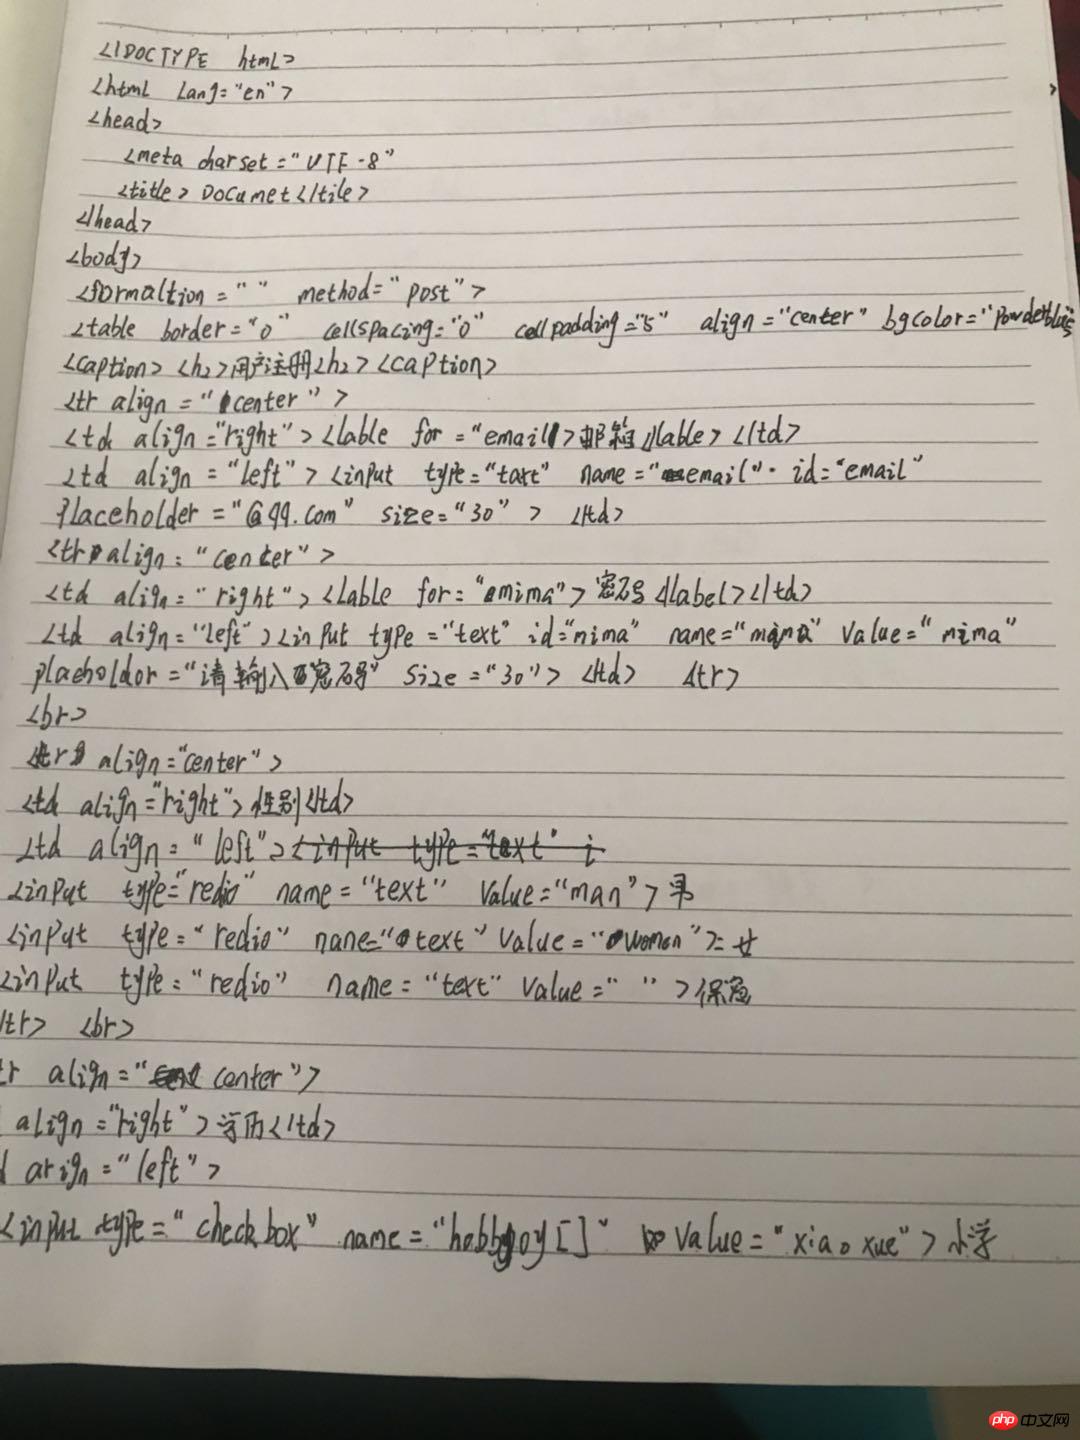 <!DOCTYPE html>
<html lang="en">
<head>
<meta charset="UTF-8"
<title> Documet</title>
</head>
<body>
<formaltion="" method="post">
<table border="0" cellspacing="0" cellpadding="5" align="center" bgcolor="powderblue
<caption> <h2>用户注册<h2> <caption>
<tr align="center">
<td align="right"> <lable for="email"> 邮箱</lable> </td>
<td align="left"> <input type="text" name="email" id="email"
Placeholder="@qq.com" size="30"> </td>
<tr align="center">
<td align="right"> <lable for="mima"> 密码</label></td>
<td align="left"> <input type="text" id="mima" name="mima" value="mima"
placeholdor="请输入密码" size="30"> </td> </tr>
<br>
<tr align="center">
<td align="right"> 性别</td>
<td align="left">
<input type="redio" name="text" value="man"> 男
<input type="redio" name="text" value="women"> 女
<input type="redio" name="text" value=" "> 保密
/tr> <br>
tr align="center">
align="right"> 学历</td>
arign="left">
<input type="checkbox" name="[]" value="xiao xue"> 小学
php 中文网